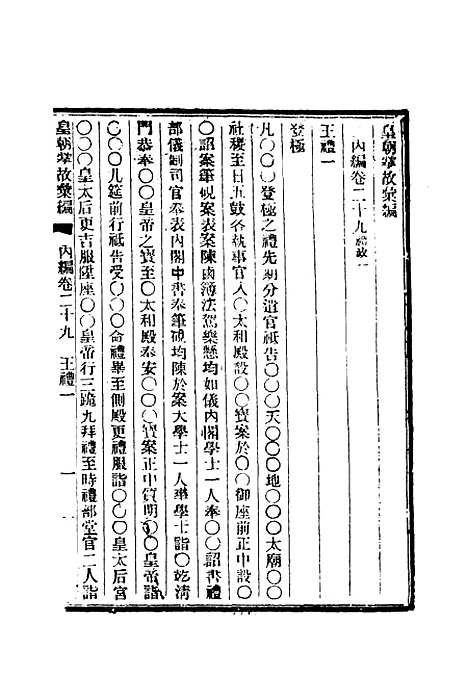 皇朝掌故彙編
內編卷二十九禮政一
王禮一
登極
凡〇〇〇登極之禮先期分遣官祗告〇〇〇天〇〇〇地〇〇〇太廟〇〇
社稷至日五鼓各執事官入〇太和殿設〇〇寶案於〇〇御座前正中設〇
〇詔案筆硯案表案陳鹵簿法駕樂懸均如儀內閣學士一人奉〇〇詔書禮
部儀制司官奉表內閣中書奉筆硯均陳於案大學士一人率學士詣〇乾淸
門恭奉〇〇〇皇帝之寶至〇太和殿奉安〇〇〇寶案正中質明〇〇皇帝詣
〇〇〇几筵前行祗告受〇〇〇命禮畢至側殿更禮服詣〇〇〇皇太后宮
〇〇〇皇太后更吉服陞座〇〇皇帝行三跪九拜禮至時禮部堂官二人詣
皇朝掌故彙編 內編卷二十九 王禮一 一